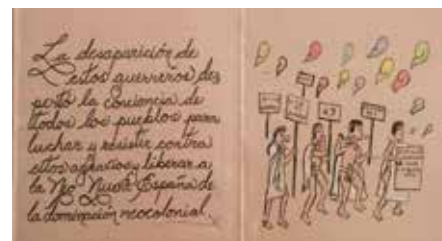 La desaparición de
estos guerreros des
pertó la conciencia de
todos los pueblos para
luchar y resistir contra
estos agravios y liberar a
la Neo Nueva España de
la dominación neocolonial.
43